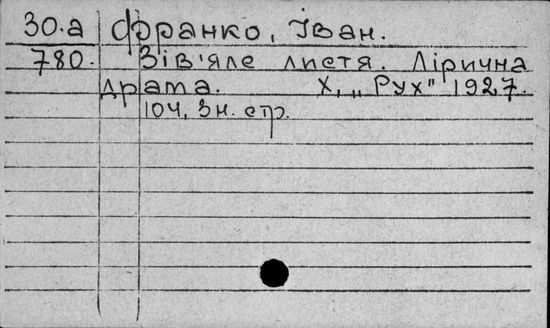 30.а Франко, Іван.
780. Зів'яле листя. Лірична
драма. Х, „Рух" 1927.
104, 3н. стр.